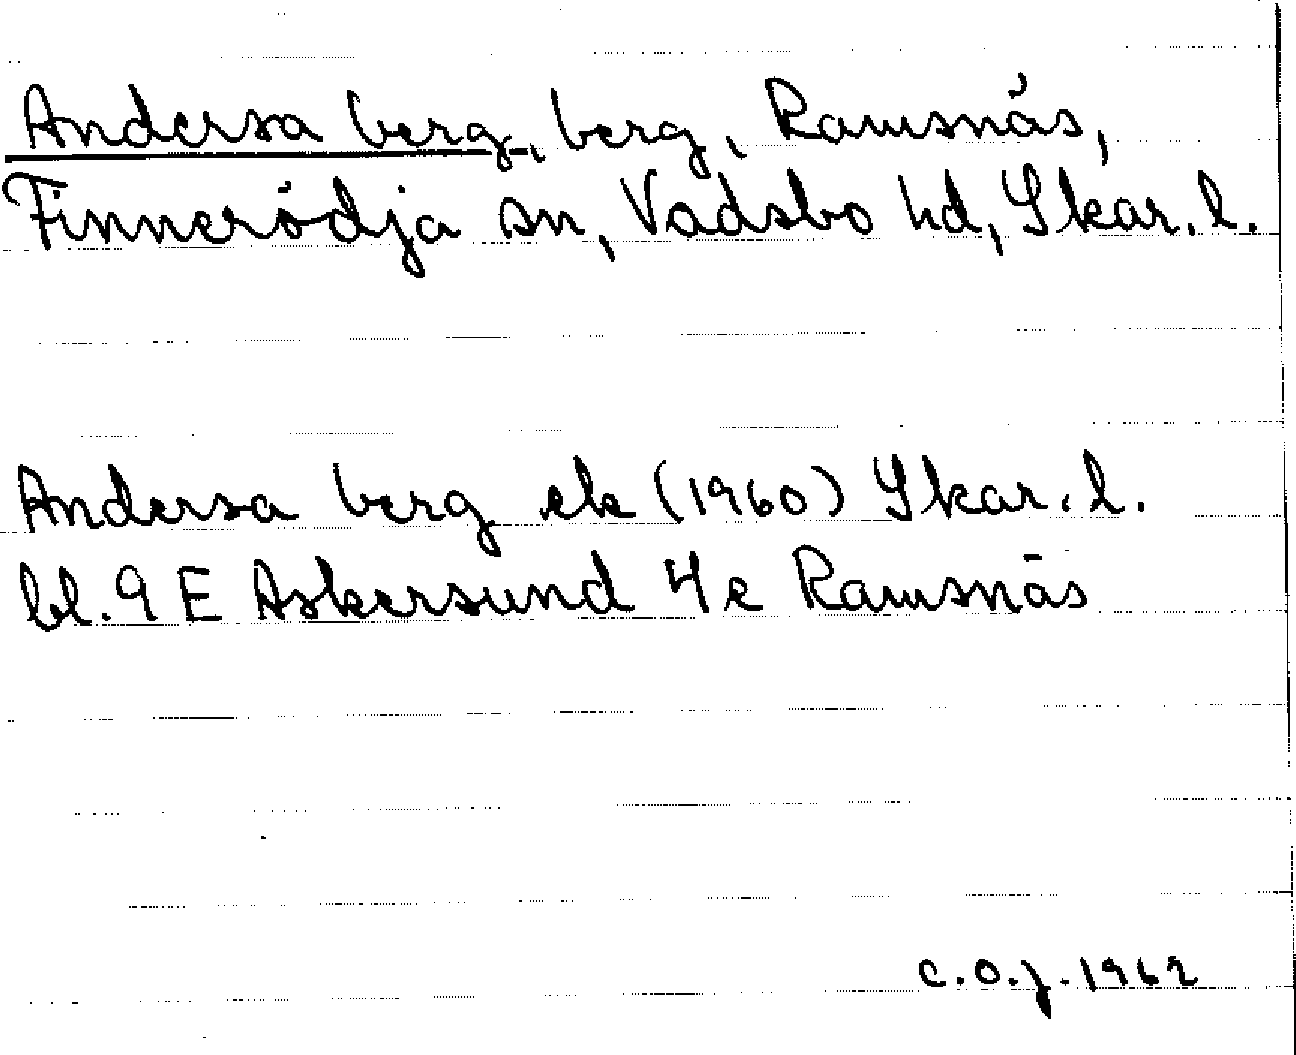 Andersa berg, berg, Ramsnäs,
Finnerödja sn, Vadsbo hd, Skar. l.
Andersa berg ek (1960) Skar. l.
bl. 9 E Askersund 4 e Ramsnäs
C.O.J. 1962